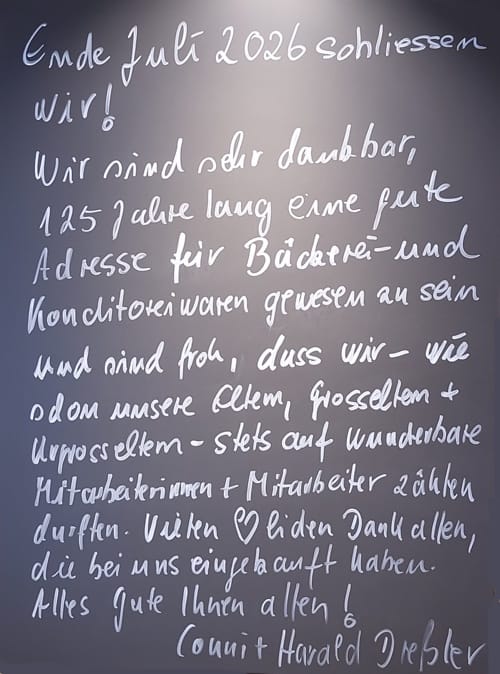 Ende Juli 2026 schliessen
wir!
Wir sind sehr dankbar,
125 Jahre lang eine gute
Adresse für Bäckerei-und
Konditoreiwaren gewesen zu sein
und sind froh, dass wir - wie
schon unsere Eltern, Grosseltern +
Urgrosseltern - stets auf wunderbare
Mitarbeiterinnen + Mitarbeiter zählen
durften. Vielen ♡lichen Dank allen,
die bei uns eingekauft haben.
Alles gute Ihnen allen!
Conni + Harald Dreßler